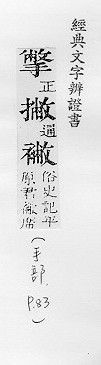 經典文字辨證書
撆正撇通襒俗史記平
原君襒席
(手部, P.83)